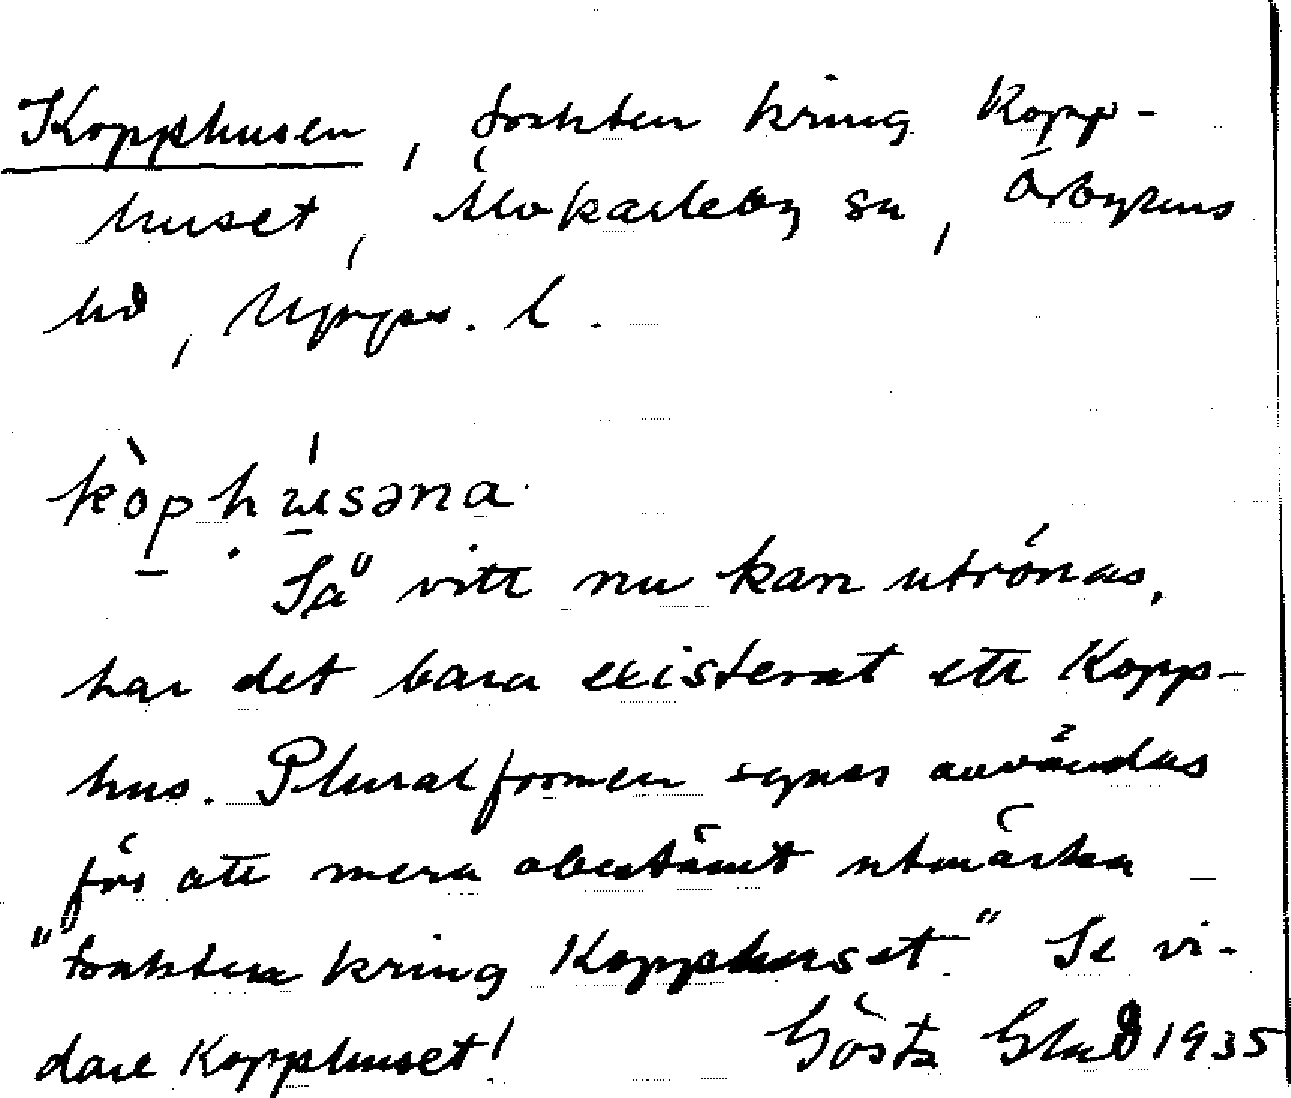 Kopphusen, trakten kring Kopp-
huset, Älvkarleby sn, Örbyhus
hd, Uppsa. l.
kòp húsəna
Så vitt nu kan utrönas,
har det bara existerat ett Kopp-
hus. Pluralformen synes användas
för att mera obestämt utmärka
"trakten kring Kopphuset." Se vi-
dare Kopphuset! Gösta Glad 1935